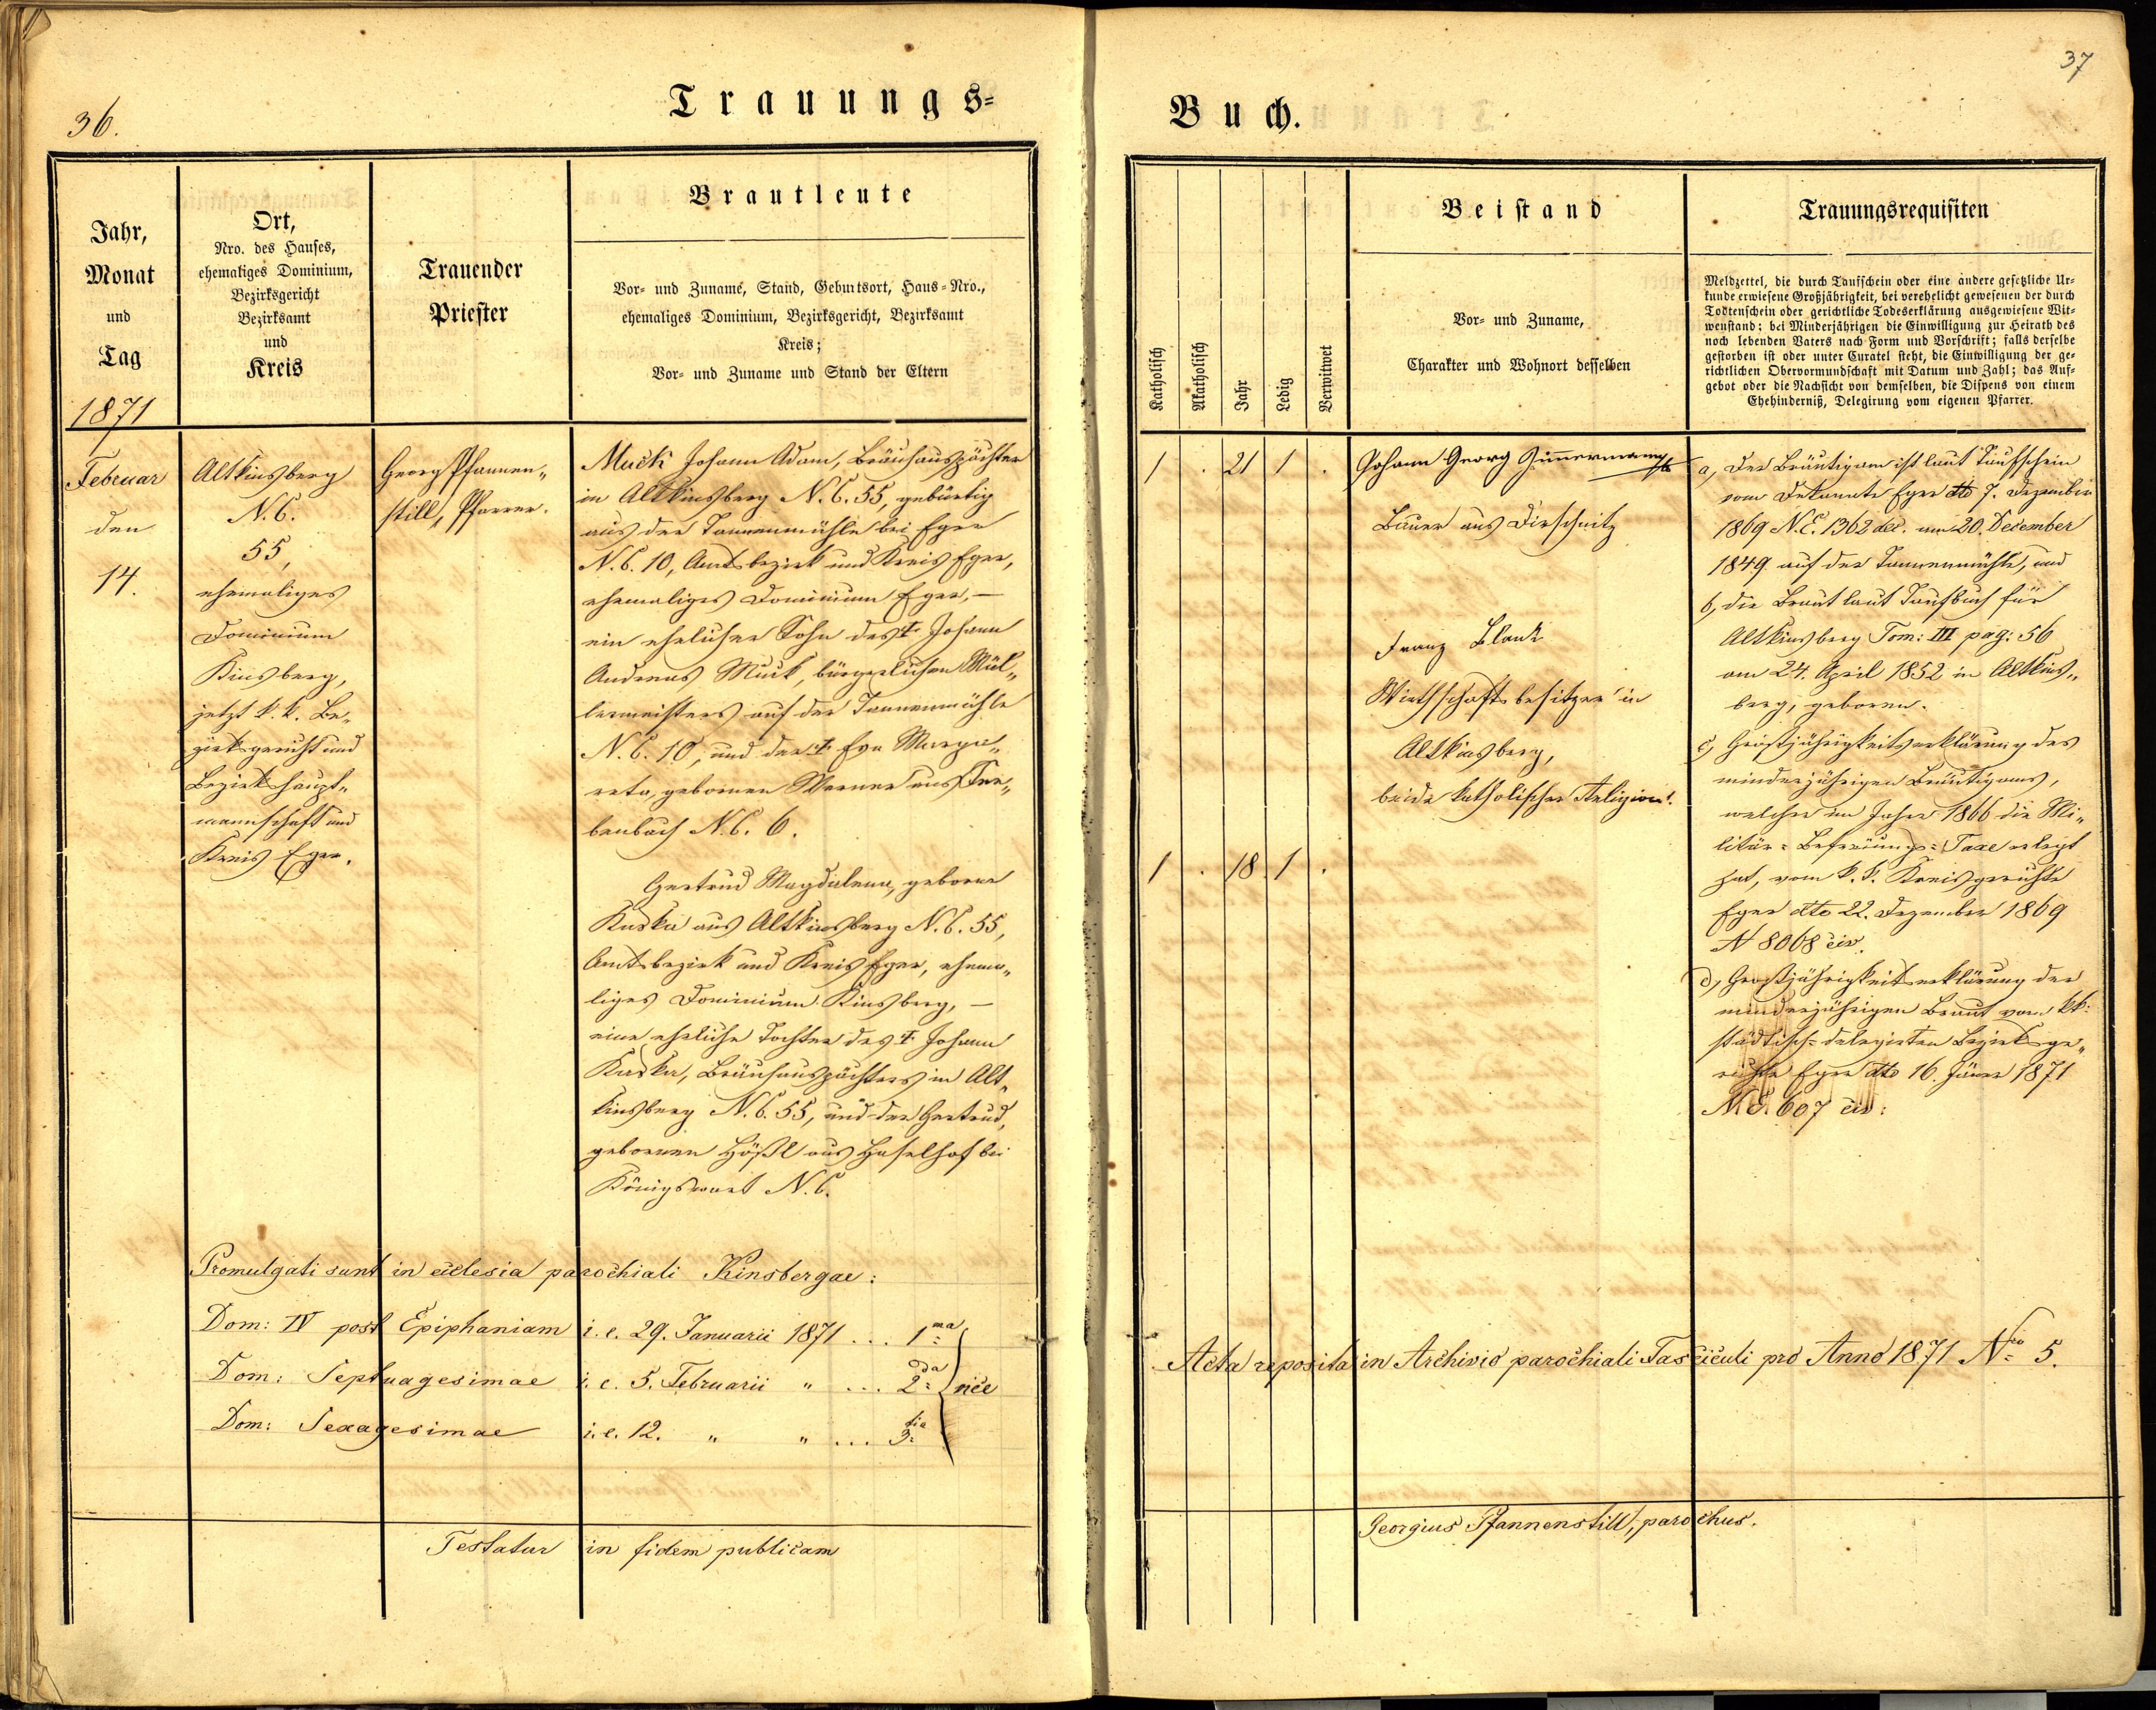 36.
Trauungs=
Jahr,
Monat
und
Tag
1871
Ort,
Nro. des Hauses,
ehemaliges Dominium,
Bezirksgericht
Bezirksamt
und
Kreis
Trauender
Priester
Brautleute
Vor- und Zuname, Stand, Geburtsort, Haus-Nro.,
ehemaliges Dominium, Bezirksgericht, Bezirksamt
Kreis;
Vor- und Zuname und Stand der Eltern
Februar
den
14.
Altkinsberg
N.C.
55,
ehemaliges
Dominium
Kinsberg,
jetzt k.k. Be„
zirksgericht und
Bezirkshaupt„
mannschaft und
Kreis Eger.
Georg Pfannen„
still, Pfarrer.
Muck Johann Adam, Bräuhauspächter
in Altkinsberg N.C. 55, gebürtig
aus der Tannenmühle bei Eger
N.C. 10, Amtsbezirk und Kreis Eger,
ehemaliges Dominium Eger, —
ein ehelicher Sohn des † Johann
Andreas Muck, bürgerlichen Mül„
lermeisters auf der Tannenmühle
N.C. 10, und der † Eva Marga„
reta, gebornen Werner aus
benbach N.C. 6.
Gertrud Magdalena, geborne
Kuska aus Altkinsberg N.C. 55,
Amtsbezirk und Kreis Eger, ehema„
liges Dominium Kinsberg, —
eine eheliche Tochter des † Johann
Kuska, Bräuhauspächters in Alt„
kinsberg N.C. 55, und der Gertrud,
gebornen Hößl aus Haselhof bei
Königswart N.C.
Promulgati sunt in ecclesia parochiali Kinsbergae:
Dom: IV post Epiphaniam i.e. 29. Januarii 1871 ... 1ma
Dom: Septuagesimae i.e. 5. Februarii „ ... 2da vice
Dom: Sexagesimae i.e. 12. „ „ ... 3tia
Testatur in fidem publicam
37
Buch.
Katholisch
Akatholisch
Jahr
Ledig
Verwitwet
Beistand
Vor- und Zuname,
Charakter und Wohnort desselben
Trauungsrequisiten
Meldzettel, die durch Taufschein oder eine andere gesetzliche Ur-
kunde erwiesene Großjährigkeit, bei verehelicht gewesenen der durch
Todtenschein oder gerichtliche Todeserklärung ausgewiesene Wit-
wenstand; bei Minderjährigen die Einwilligung zur Heirath des
noch lebenden Vaters nach Form und Vorschrift; falls derselbe
gestorben ist oder unter Curatel steht, die Einwilligung der ge-
richtlichen Obervormundschaft mit Datum und Zahl; das Auf-
gebot oder die Nachsicht von demselben, die Dispens von einem
Ehehinderniß, Delegirung vom eigenen Pfarrer.
1 . 21 1 .
1 . 18 1 .
Johann Georg
Bauer aus Dirschnitz
Franz Blank
Wirthschaftsbesitzer in
Altkinsberg,
beide katholischer Religion.
a, Der Bräutigam ist laut Taufschein
vom Dekanate Eger dto 7. Dezember
1869 N.E. 1362 dec. am 20. December
1849 auf der Tannenmühle, und
b, die Braut laut Taufbuch für
Altkinsberg Tom: III pag: 56
am 24. April 1852 in Altkins„
berg, geboren.
c, Großjährigkeitserklärung des
minderjährigen Bräutigams,
welcher im Jahre 1866 die Mi„
litär=Befreiungs=Taxe erlegt
hat, vom k.k. Kreisgerichte
Eger dto 22. Dezember 1869
N 8068 civ.
d, Großjährigkeitserklärung der
minderjährigen Braut vom kk.
städtisch=delegirten Bezirksge„
richte Eger dto 16. Jäner 1871
N.E. 607 civ:
Acta reposita in Archivio parochiali Fasciculi pro Anno 1871 Nro 5.
Georgius Pfannenstill, parochus.